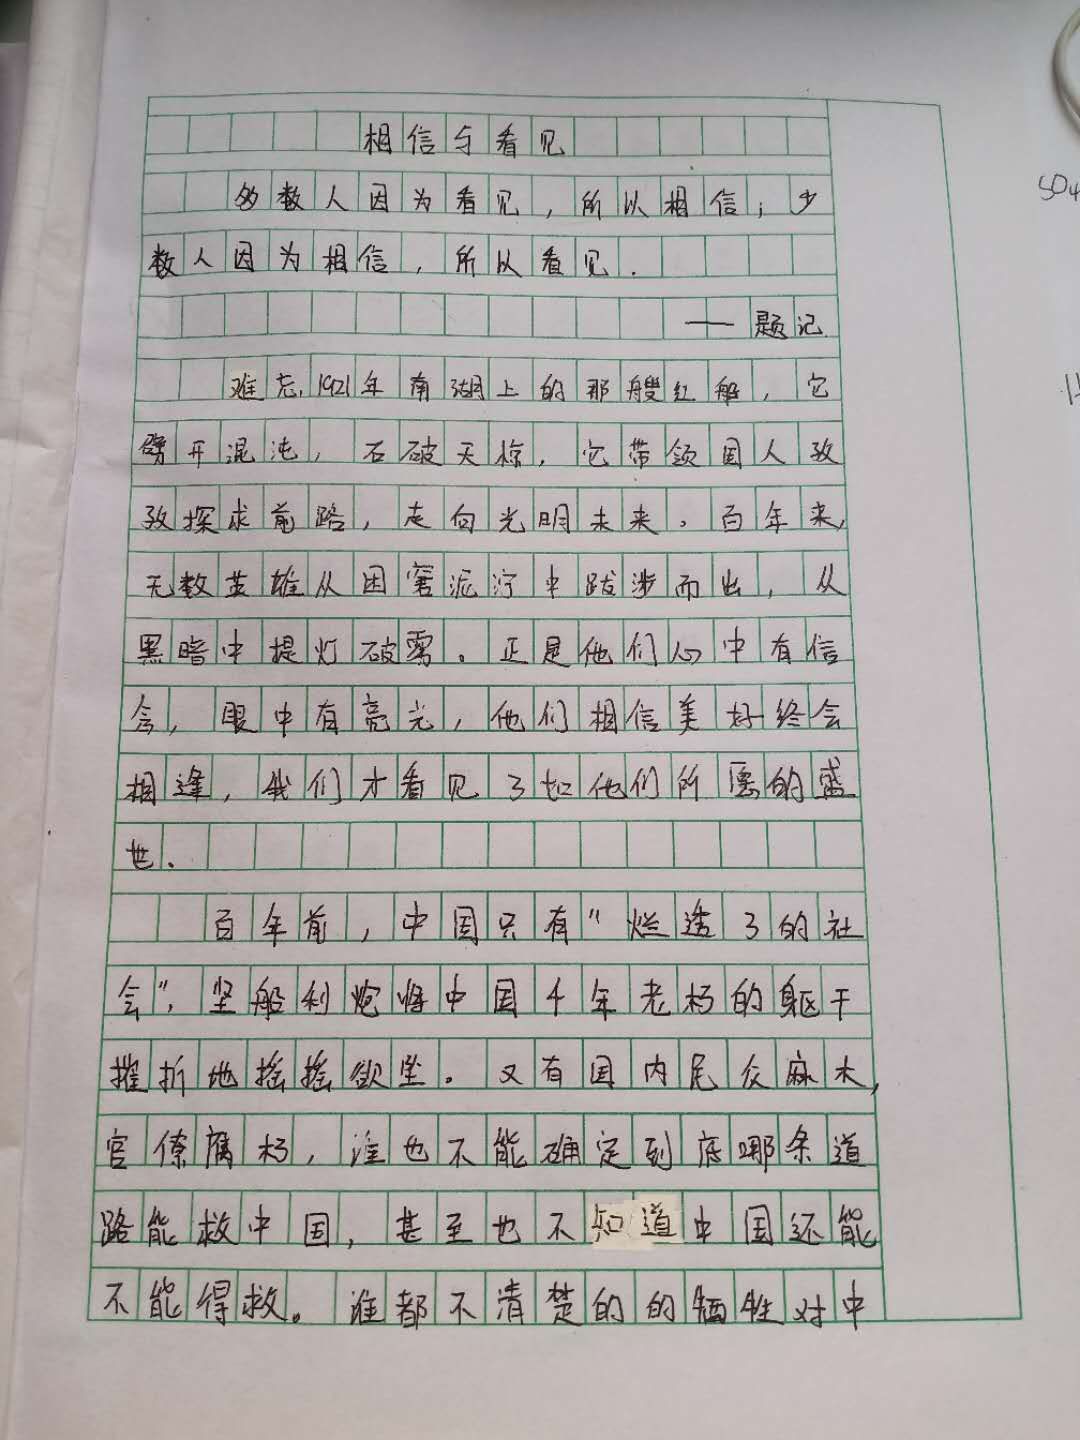 相信与看见
多数人因为看见，所以相信；少
数人因为相信，所以看见.
——题记
难忘,1921年南湖上的那艘红船，它
劈开混沌，石破天惊，它带领国人孜
孜探求前路，走向光明未来。百年来,
无数英雄从困窘泥泞中跋涉而出，从
黑暗中提灯破雾。正是他们心中有信
念，眼中有亮光，他们相信美好终会
相逢，我们才看见了如他们所愿的盛
世.
百年前，中国只有"烂透了的社
会"，坚船利炮将中国千年老朽的躯干
摧折地摇摇欲坠。又有国内民众麻木,
官僚腐朽，谁也不能确定到底哪条道
路能救中国，甚至也不知道中国还能
不能得救。谁都不清楚的的牺牲对中
504